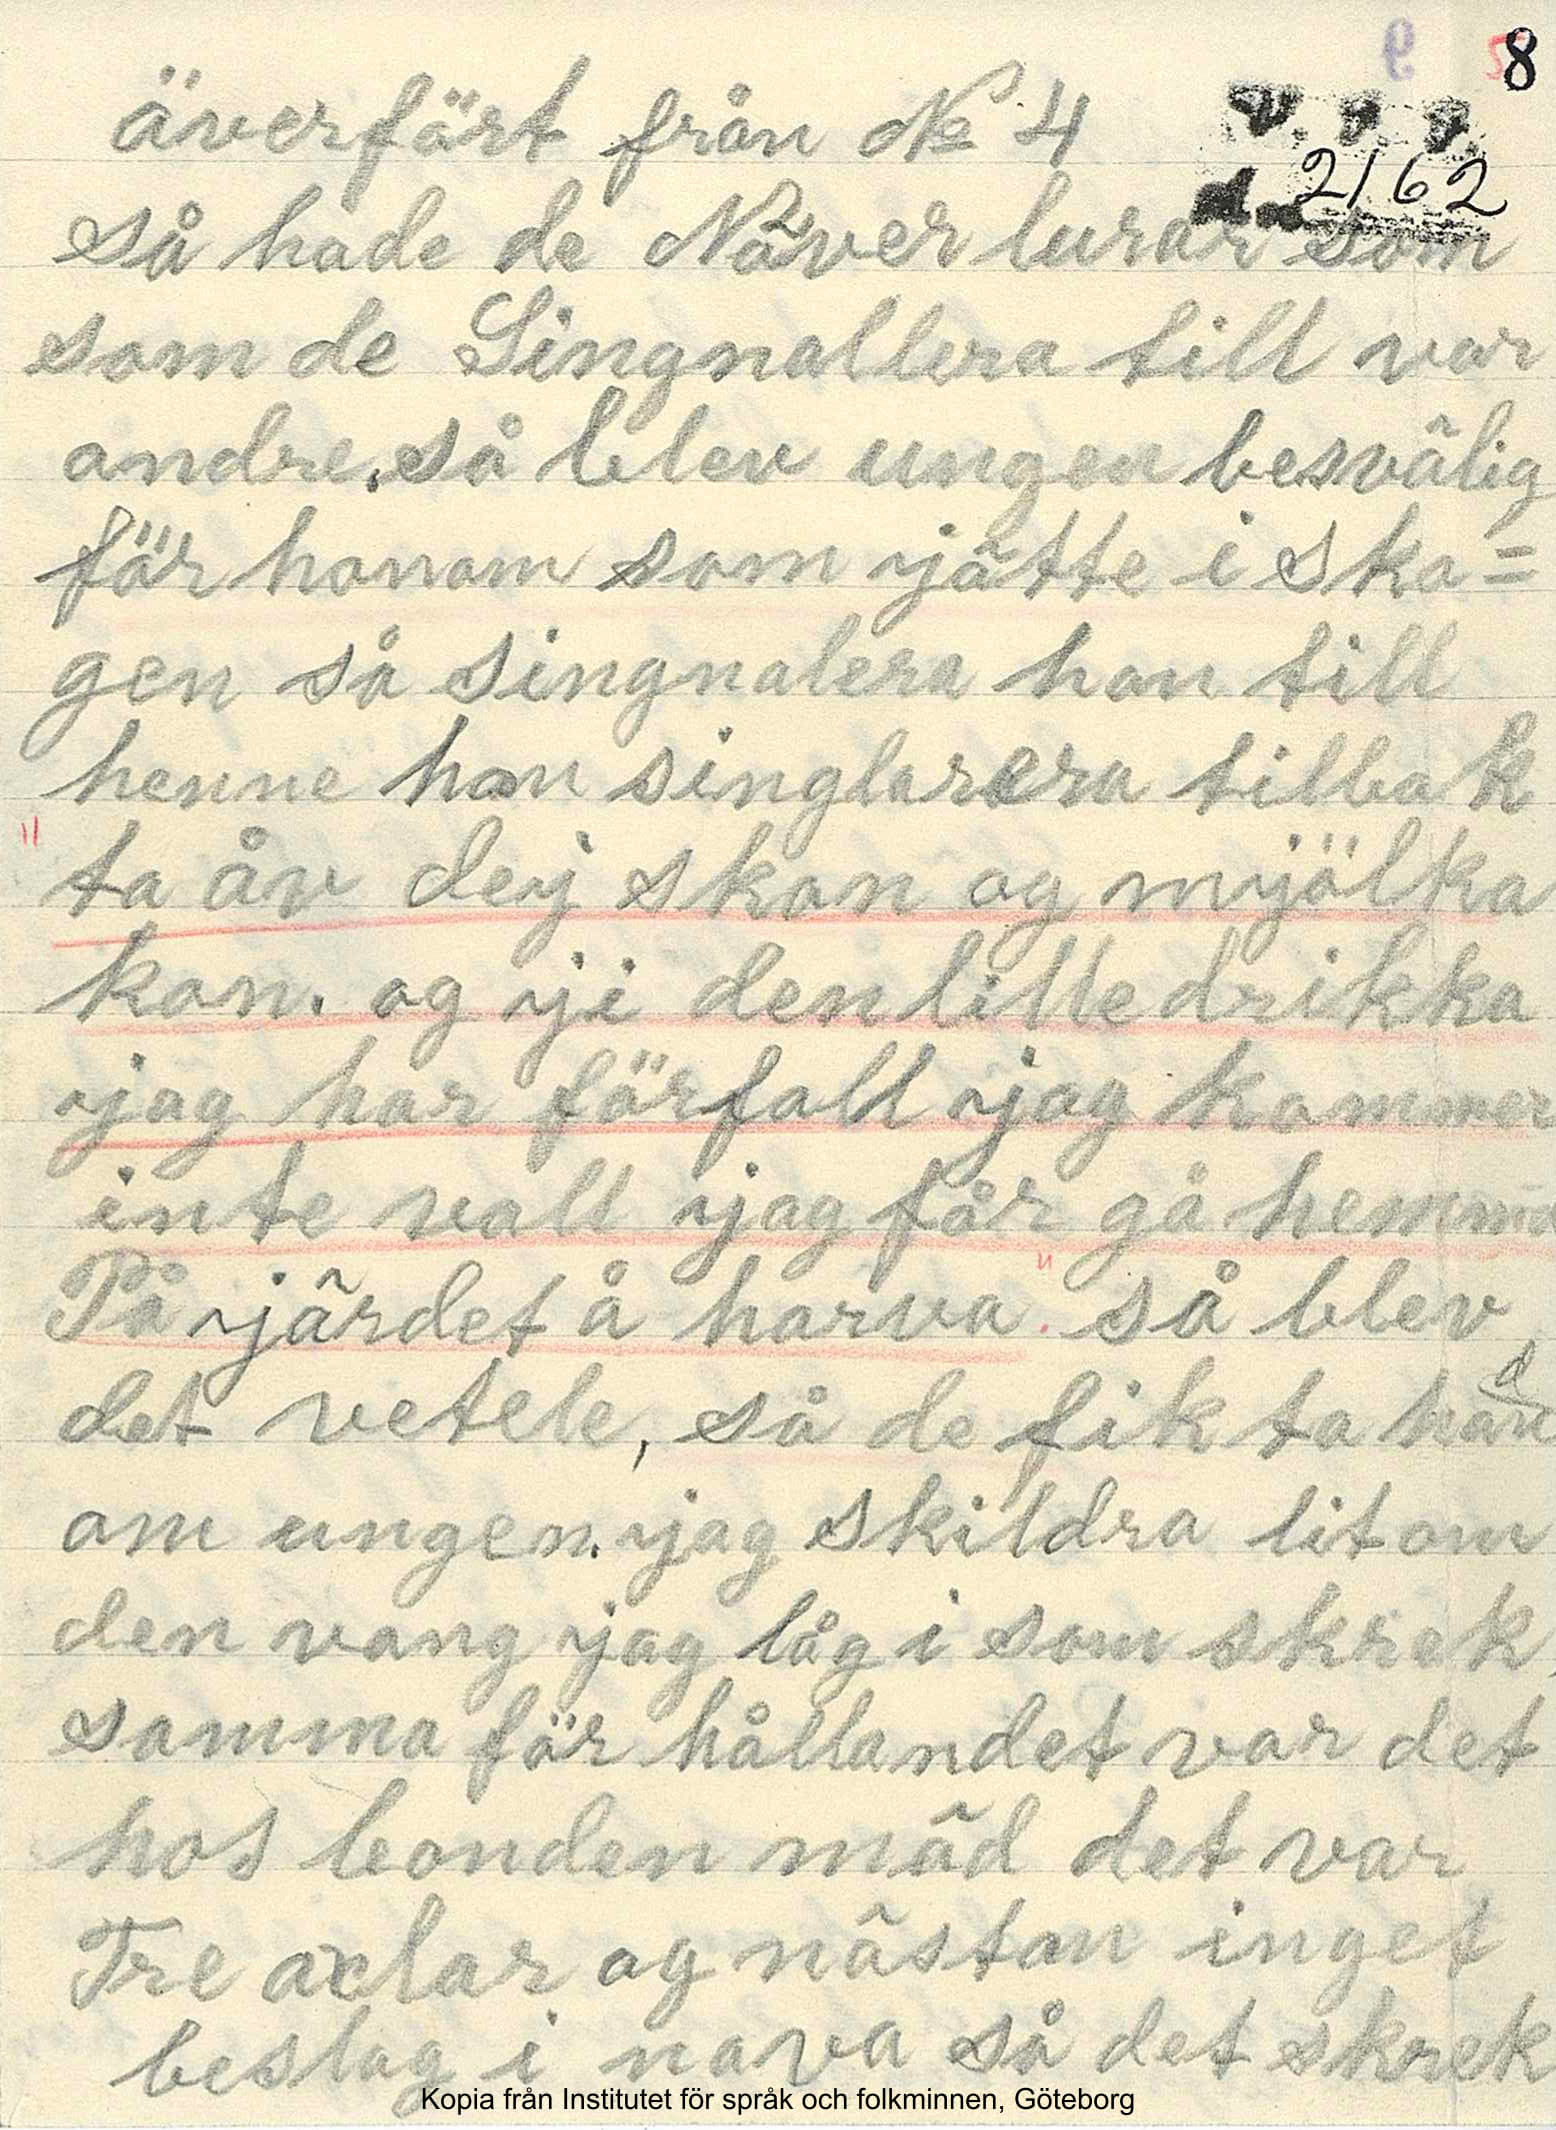 8
V. F. F.
2162
överfört från No 4
2
så hade de Näver lurar som
som de Singnallera till var
andre, så blev ungen besvälig
för honom som jätte i sko=
gen så singnalera han till
henne hon singlarera tilbak
" ta åv dej skon og mjölka
kon. og ji den lille drikka
jag har förfall jag kommer
inte vall jag får gå hemma
På järdet å harva." så blev
det vetele, så de fik ta hand
om ungen. jag skildra lit om
den vang jag låg i som skrek,
samma för hållandet var det
hos bonden mäd det var
Tre axlar og nästan inget
beslag i nava så det skrek
Kopia från Institutet för språk och folkminnen, Göteborg